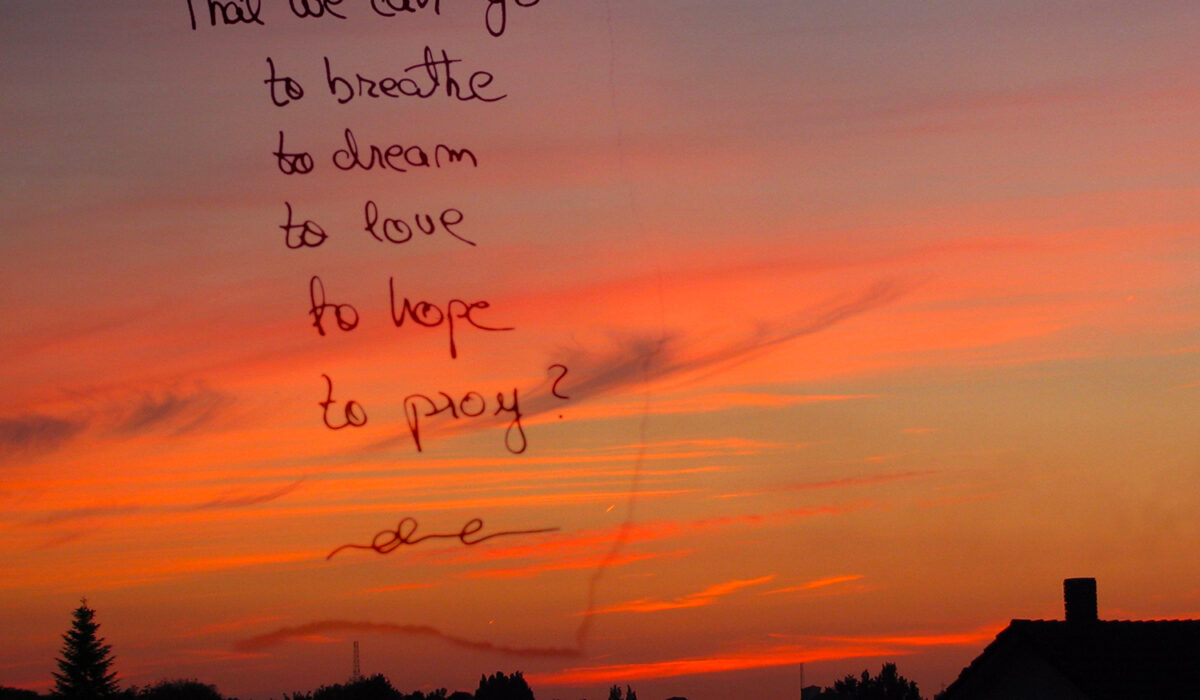 That we can go
to breathe
to dream
to love
to hope
to pray?